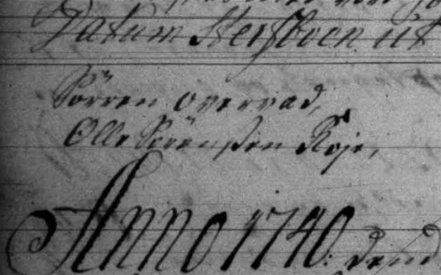 Datum Hersloen ut
Sörren Overvad,
Olle Sörensen Koje,
Anno 1740: dend